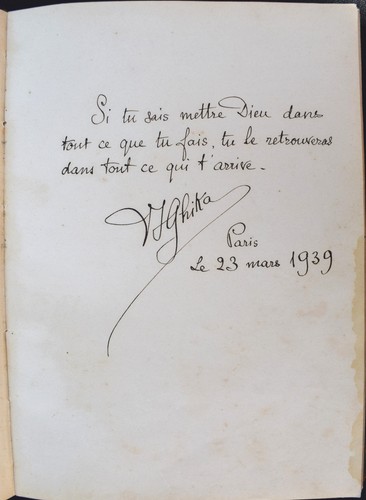 Si tu sais mettre Dieu dans
tout ce que tu fais, tu le retrouveras
dans tout ce qui t'arrive.
VIGhika
Paris
Le 23 mars 1939